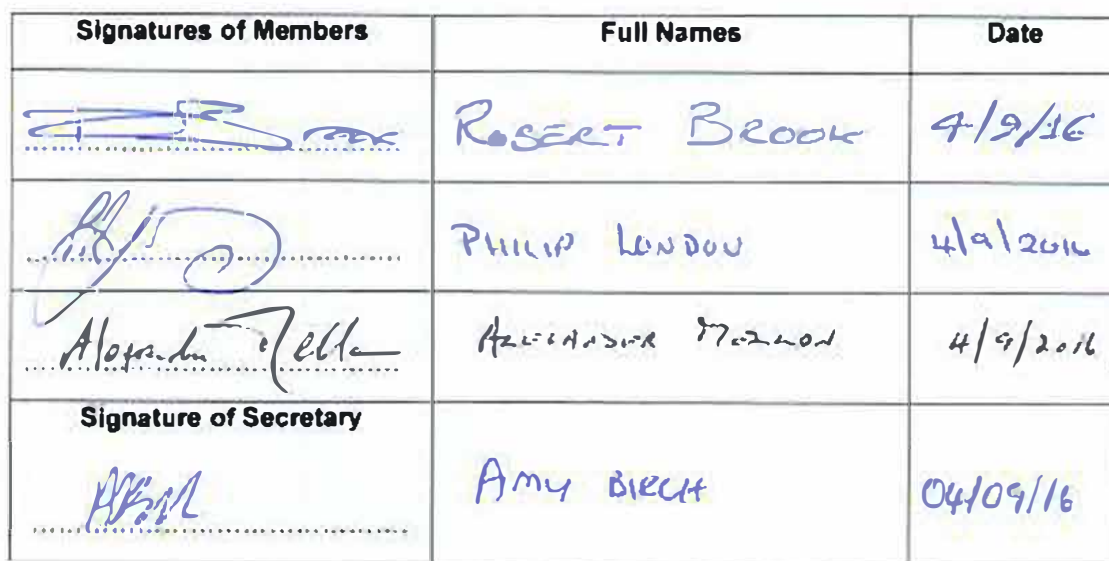 Signatures of Members Full Names Date
ROBERT BROOK 4/9/16
PHILIP LONDON 4/9/2016
Alexander ALEXANDER MELLON 4/9/2016
Signature of Secretary
AMY BIRCH 04/09/16